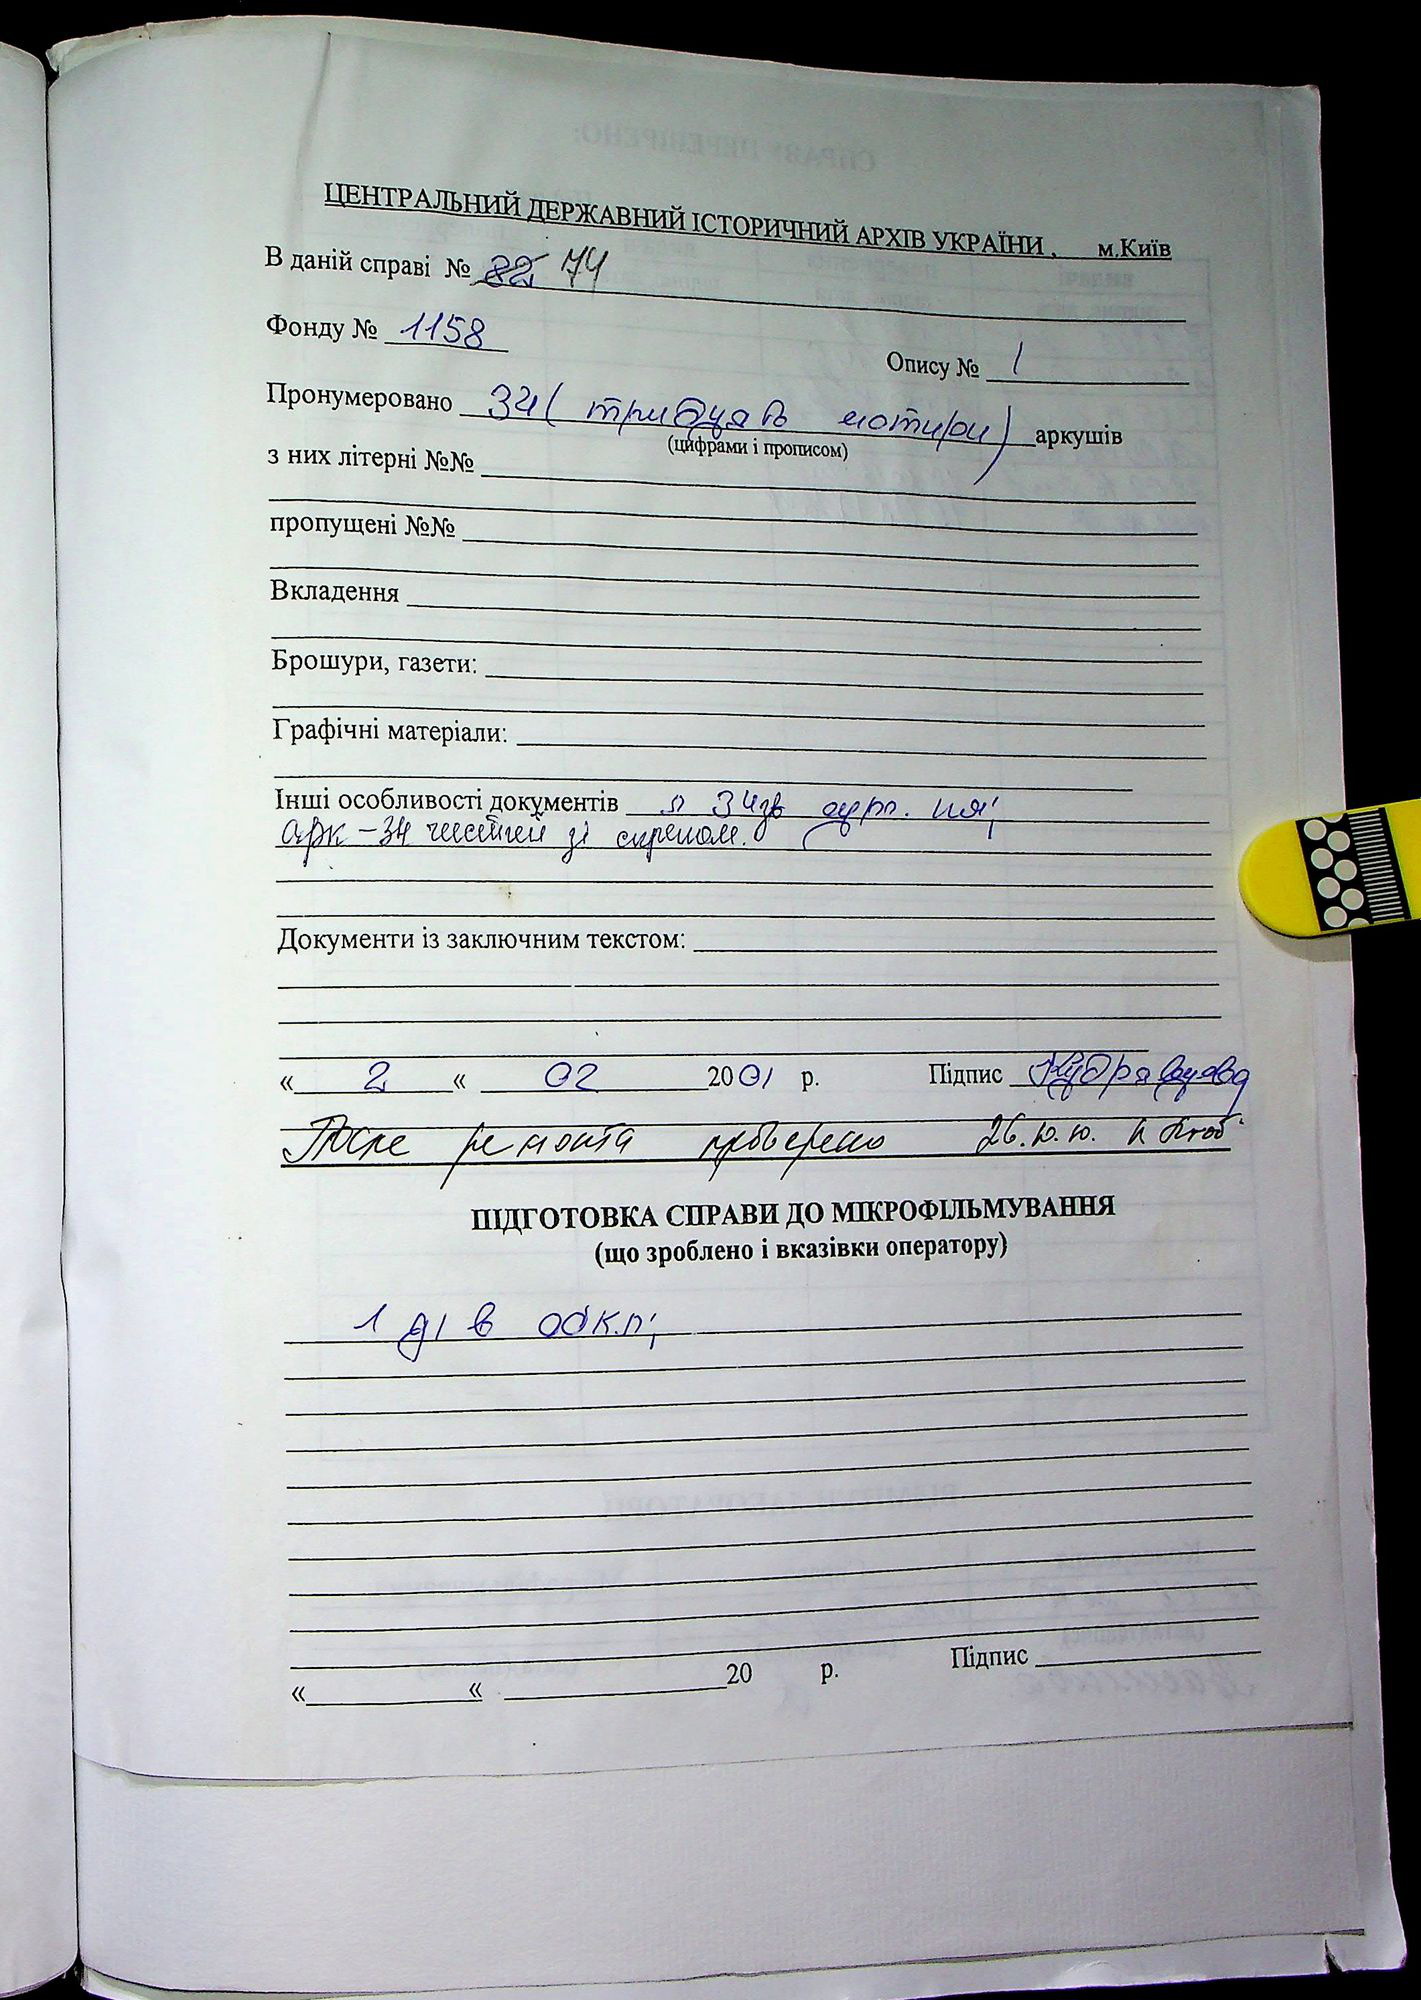 ЦЕНТРАЛЬНИЙ ДЕРЖАВНИЙ ІСТОРИЧНИЙ АРХІВ УКРАЇНИ , м.Київ
В даній справі № 82 74
Фонду № 1158
Опису № 1
Пронумеровано 34 ( тридцять чотири) аркушів
(цифрами і прописом)
з них літерні №№
пропущені №№
Вкладення
Брошури, газети:
Графічні матеріали:
Інші особливості документів
арк - 34 чистий зі
Документи із заключним текстом:
« 2 « 02 2001 р. Підпис Кудрявцева
После ремонта проверено 26.
ПІДГОТОВКА СПРАВИ ДО МІКРОФІЛЬМУВАННЯ
(що зроблено і вказівки оператору)
1 ді в обкл;
« « 20 р. Підпис